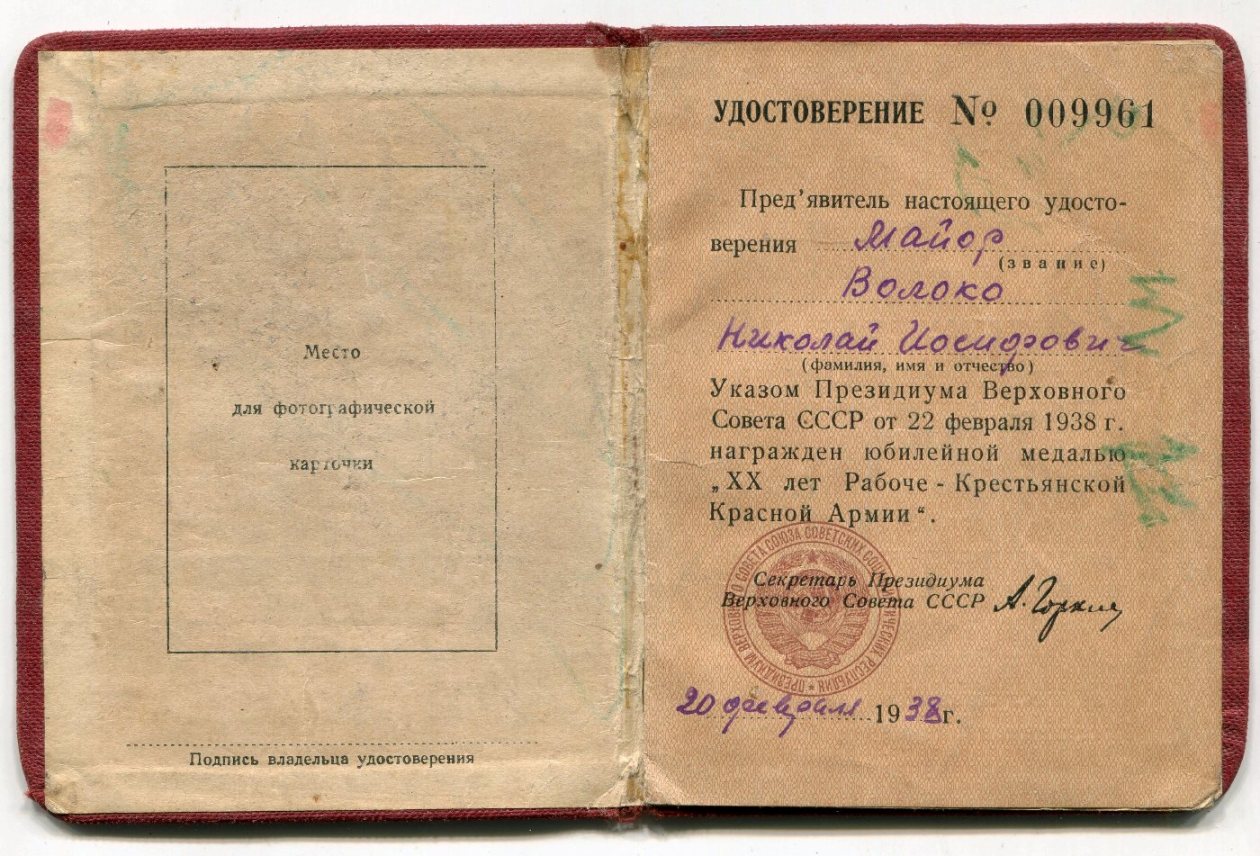 Место
для фотографической
карточки
Подпись владельца удостоверения
УДОСТОВЕРЕНИЕ № 009961
Пред'явитель настоящего удосто-
верения Майор
(звание)
Волоко
Николай Иосифович
(фамилия, имя и отчество)
Указом Президиума Верховного
Совета СССР от 22 февраля 1938 г.
награжден юбилейной медалью
„XX лет Рабоче-Крестьянской
Красной Армии“.
Секретарь Президиума
Верховного Совета СССР А. Горкин
ПРЕЗИДИУМ ВЕРХОВНОГО СОВЕТА СОЮЗА СОВЕТСКИХ СОЦИАЛИСТИЧЕСКИХ РЕСПУБЛИК
20 февраля 1938 г.